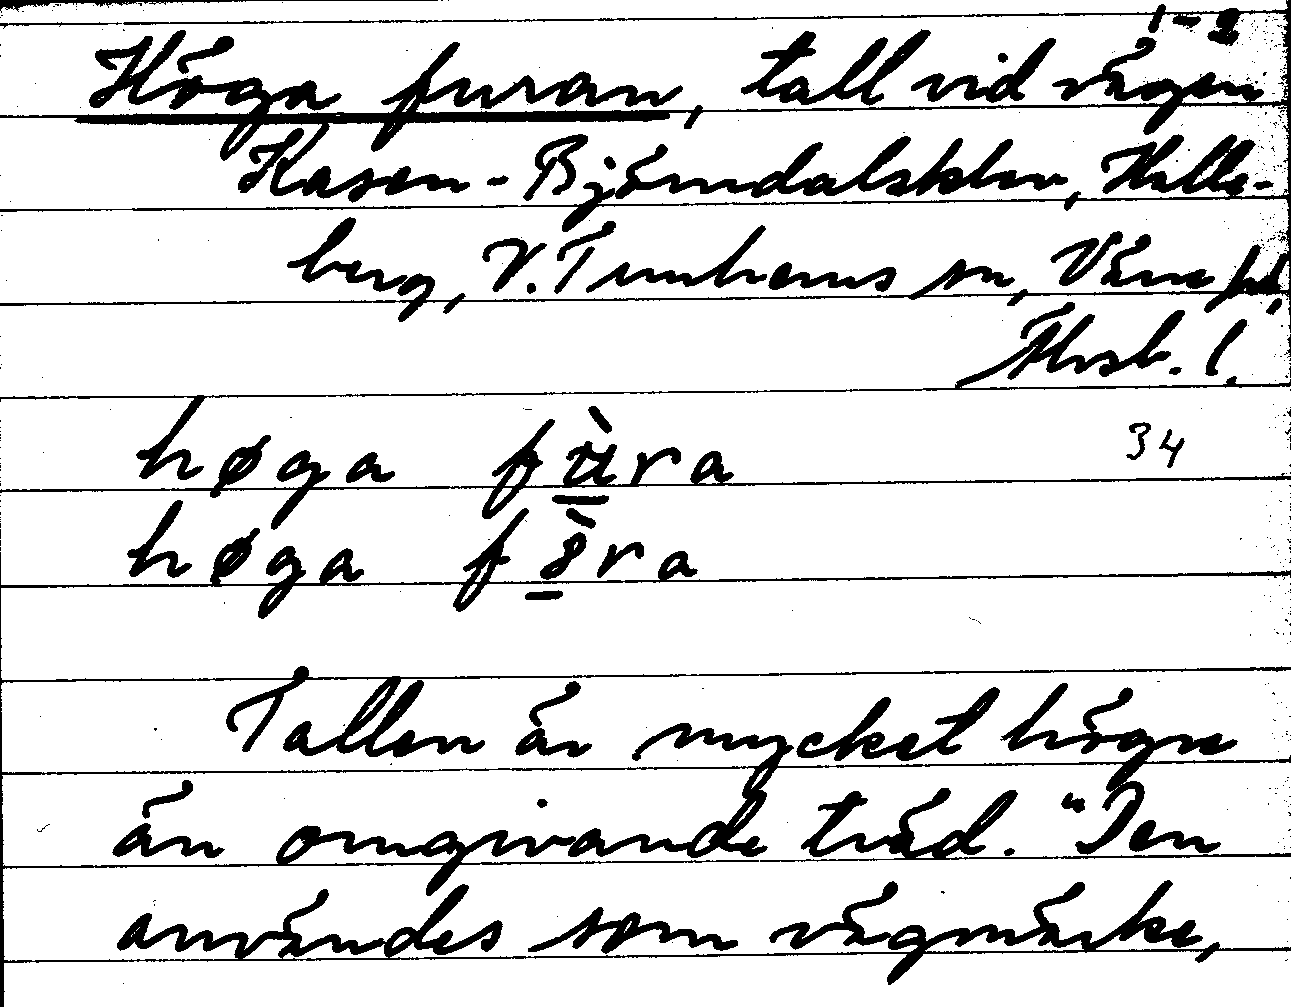 1-2
Höga furan, tall vid vägen
Kasen-Björndalsklev, Halle-
berg, V. Tunhems sn, Väne hd,
Älvsb. l.
høga fùra 34
høga f ra
Tallen är mycket högre
än omgivande träd. "Den
användes som vägmärke,